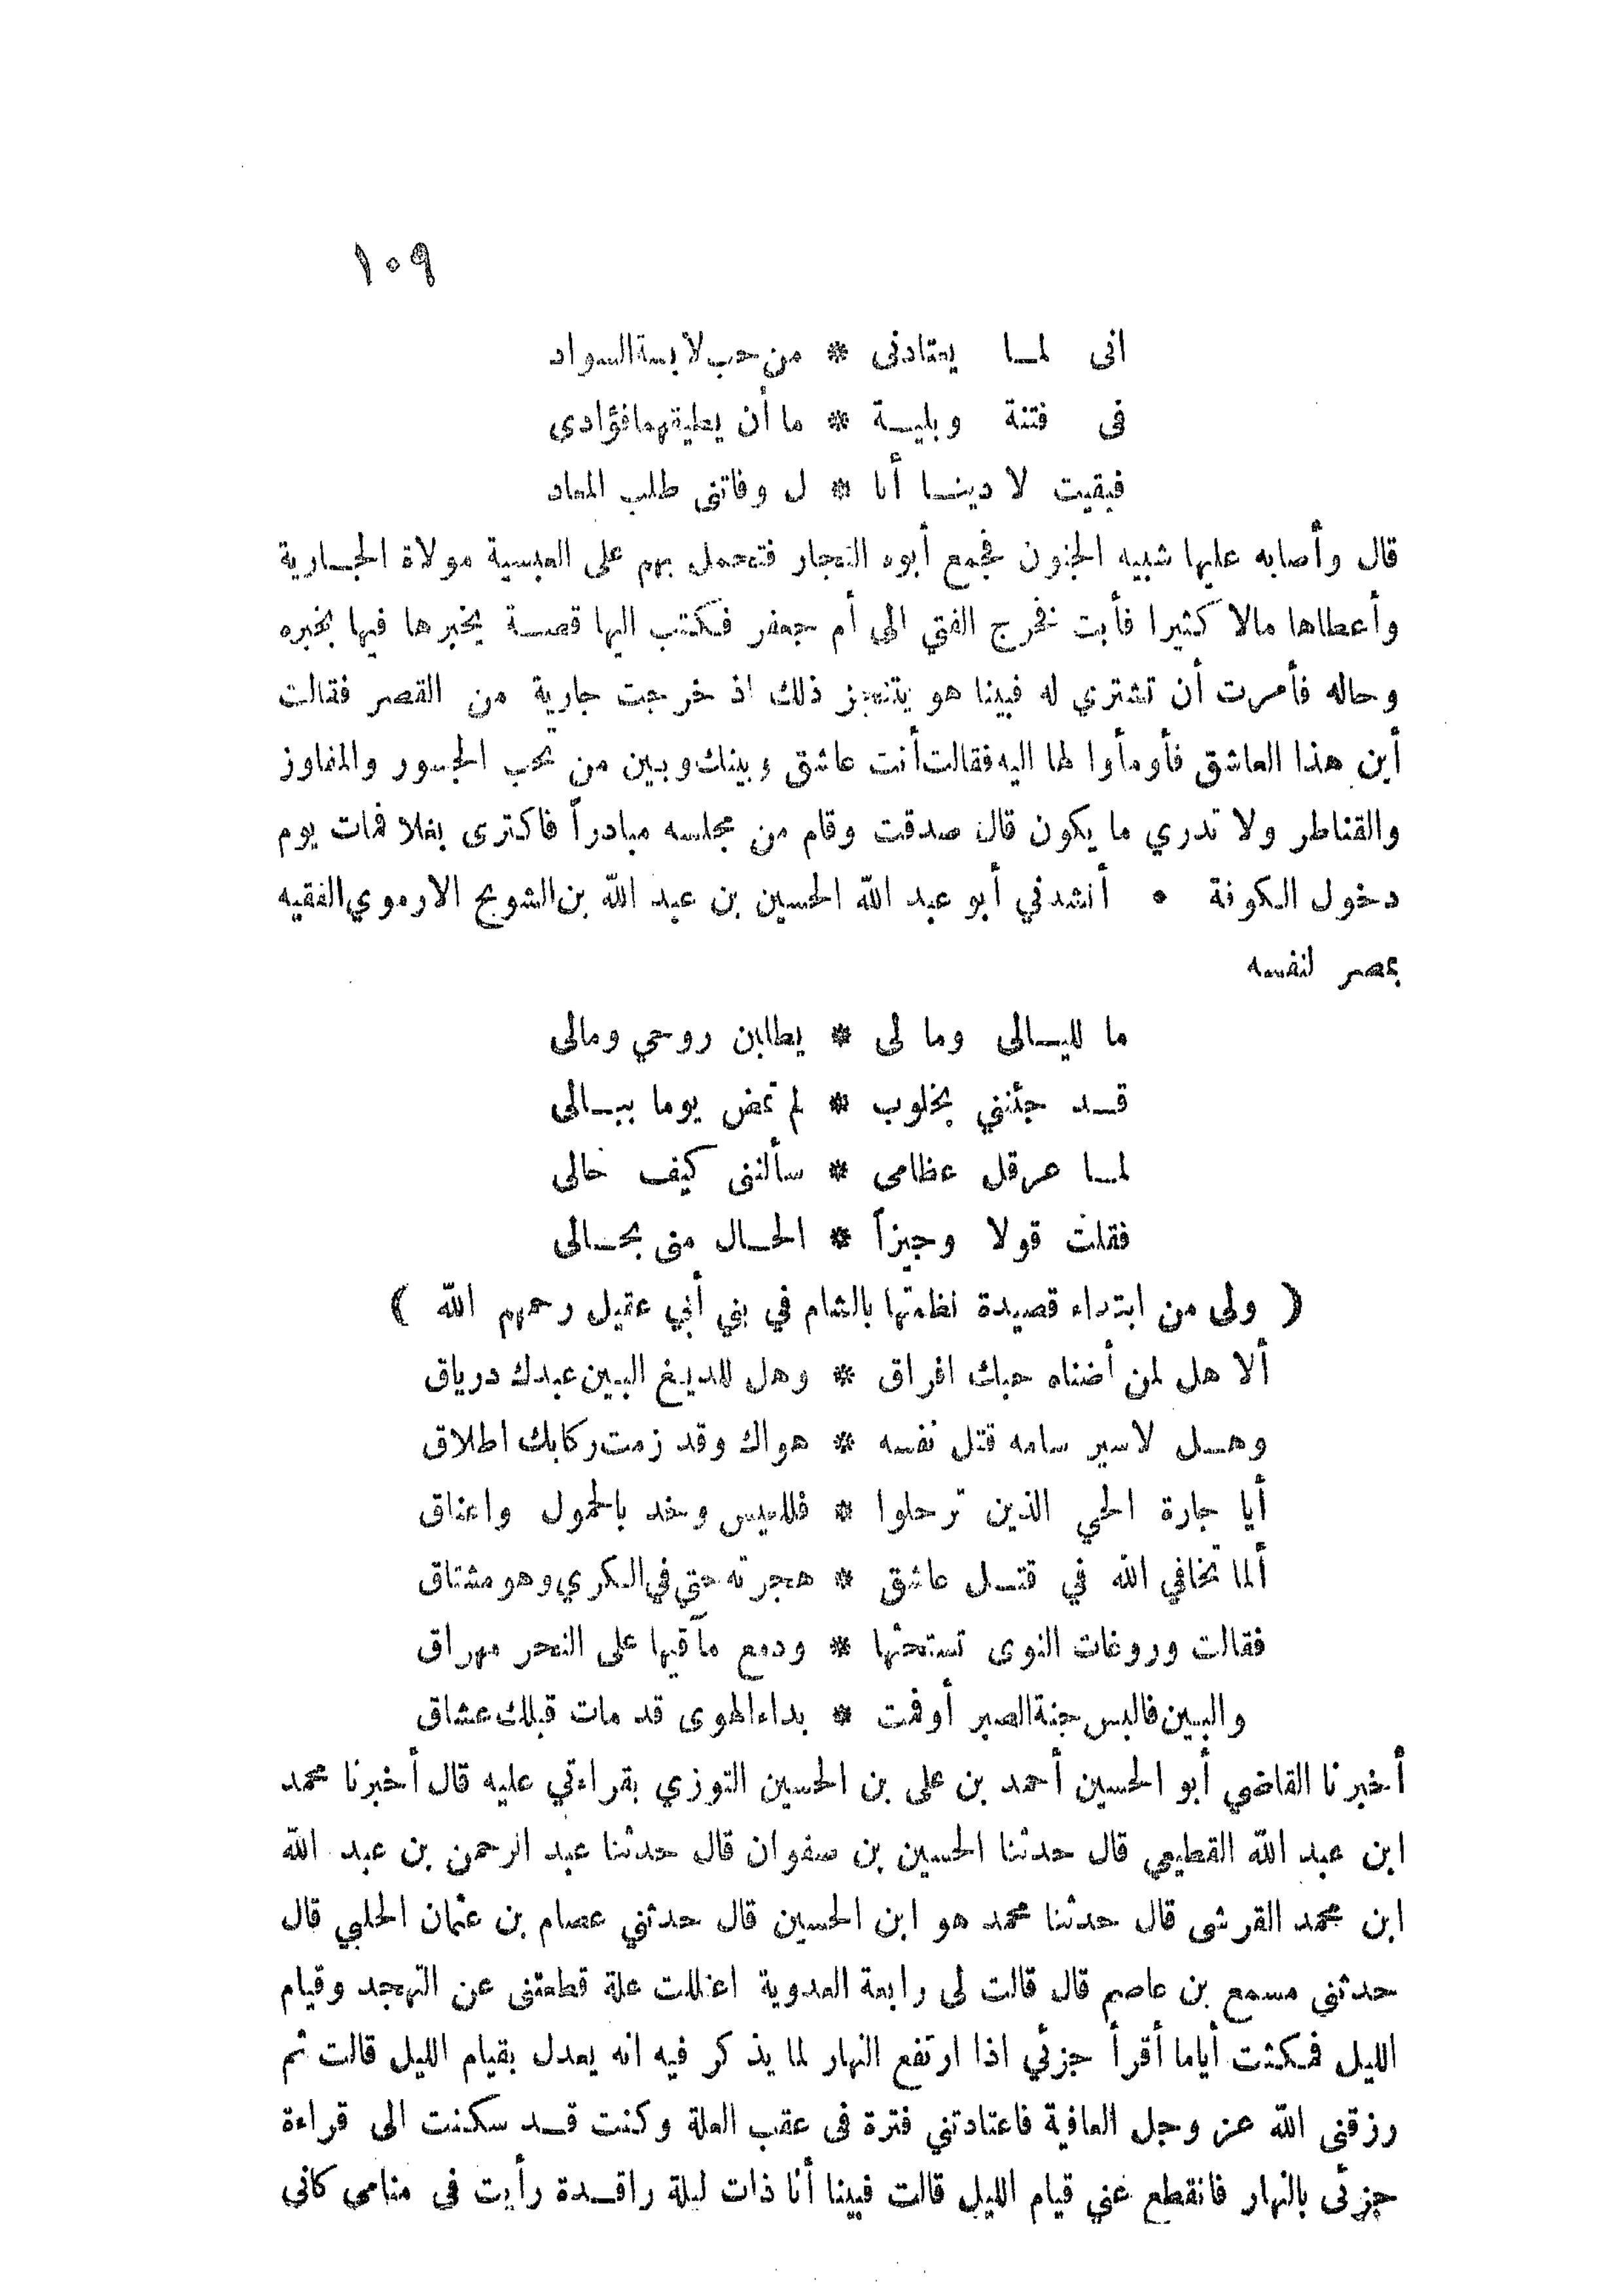 ١٠٩
انى لما يعتادنى * من حب لابسة السواد
فى فتنة وبلية * ما أن يطيقهما فؤادى
فبقيت لا دينا أنا * ل وفاتنى طلب المعاد
قال وأصابه عليها شبيه الجنون فجمع أبوه التجار فتحمل بهم على العبسية مولاة الجارية
وأعطاها مالا كثيرا فأبت فخرج الفتى الى أم جعفر فكتب اليها قصة يخبرها فيها بخبره
وحاله فأمرت أن تشتري له فبينا هو يتنجز ذلك اذ خرجت جارية من القصر فقالت
أين هذا العاشق فأومأوا لها اليه فقالت أنت عاشق وبينك وبين من تحب الجسور والمفاوز
والقناطر ولا تدري ما يكون قال صدقت وقام من مجلسه مبادراً فاكترى بغلا فمات يوم
دخول الكوفة • أنشدني أبو عبد الله الحسين بن عبد الله بن الشويح الارموي الفقيه
بمصر لنفسه
ما لليالى وما لى * يطالبن روحي ومالى
قد جئنني بخطوب * لم تمض يوما ببالى
لما عرقل عظامى * سألننى كيف حالى
فقلت قولا وجيزاً * الحال منى بحالى
( ولى من ابتداء قصيدة نظمتها بالشام في بني أبي عقيل رحمهم الله )
ألا هل لمن أضناه حبك افراق * وهل للديغ البين عبدك درياق
وهل لاسير سامه قتل نفسه * هواك وقد زمت ركابك اطلاق
أيا جارة الحي الذين ترحلوا * فللعيس وخد بالحمول واعناق
ألما تخافي الله في قتل عاشق * هجرته حتى في الكرى وهو مشتاق
فقالت وروغات النوى تستحثها * ودمع مآقيها على النحر مهراق
والبين فالبس جنة الصبر أو فمت * بداء الهوى قد مات قبلك عشاق
أخبرنا القاضي أبو الحسين أحمد بن على بن الحسين التوزي بقراءتي عليه قال أخبرنا محمد
ابن عبد الله القطيعي قال حدثنا الحسين بن صفوان قال حدثنا عبد الرحمن بن عبد الله
ابن محمد القرشى قال حدثنا محمد هو ابن الحسين قال حدثني عصام بن عثمان الحلبي قال
حدثنى مسمع بن عاصم قال قالت لى رابعة العدوية اعتللت علة قطعتنى عن التهجد وقيام
الليل فمكثت أياما أقرأ جزئي اذا ارتفع النهار لما يذكر فيه انه يعدل بقيام الليل قالت ثم
رزقنى الله عز وجل العافية فاعتادتني فترة فى عقب العلة وكنت قد سكنت الى قراءة
جزئى بالنهار فانقطع عني قيام الليل قالت فبينا أنا ذات ليلة راقدة رأيت فى منامى كأنى